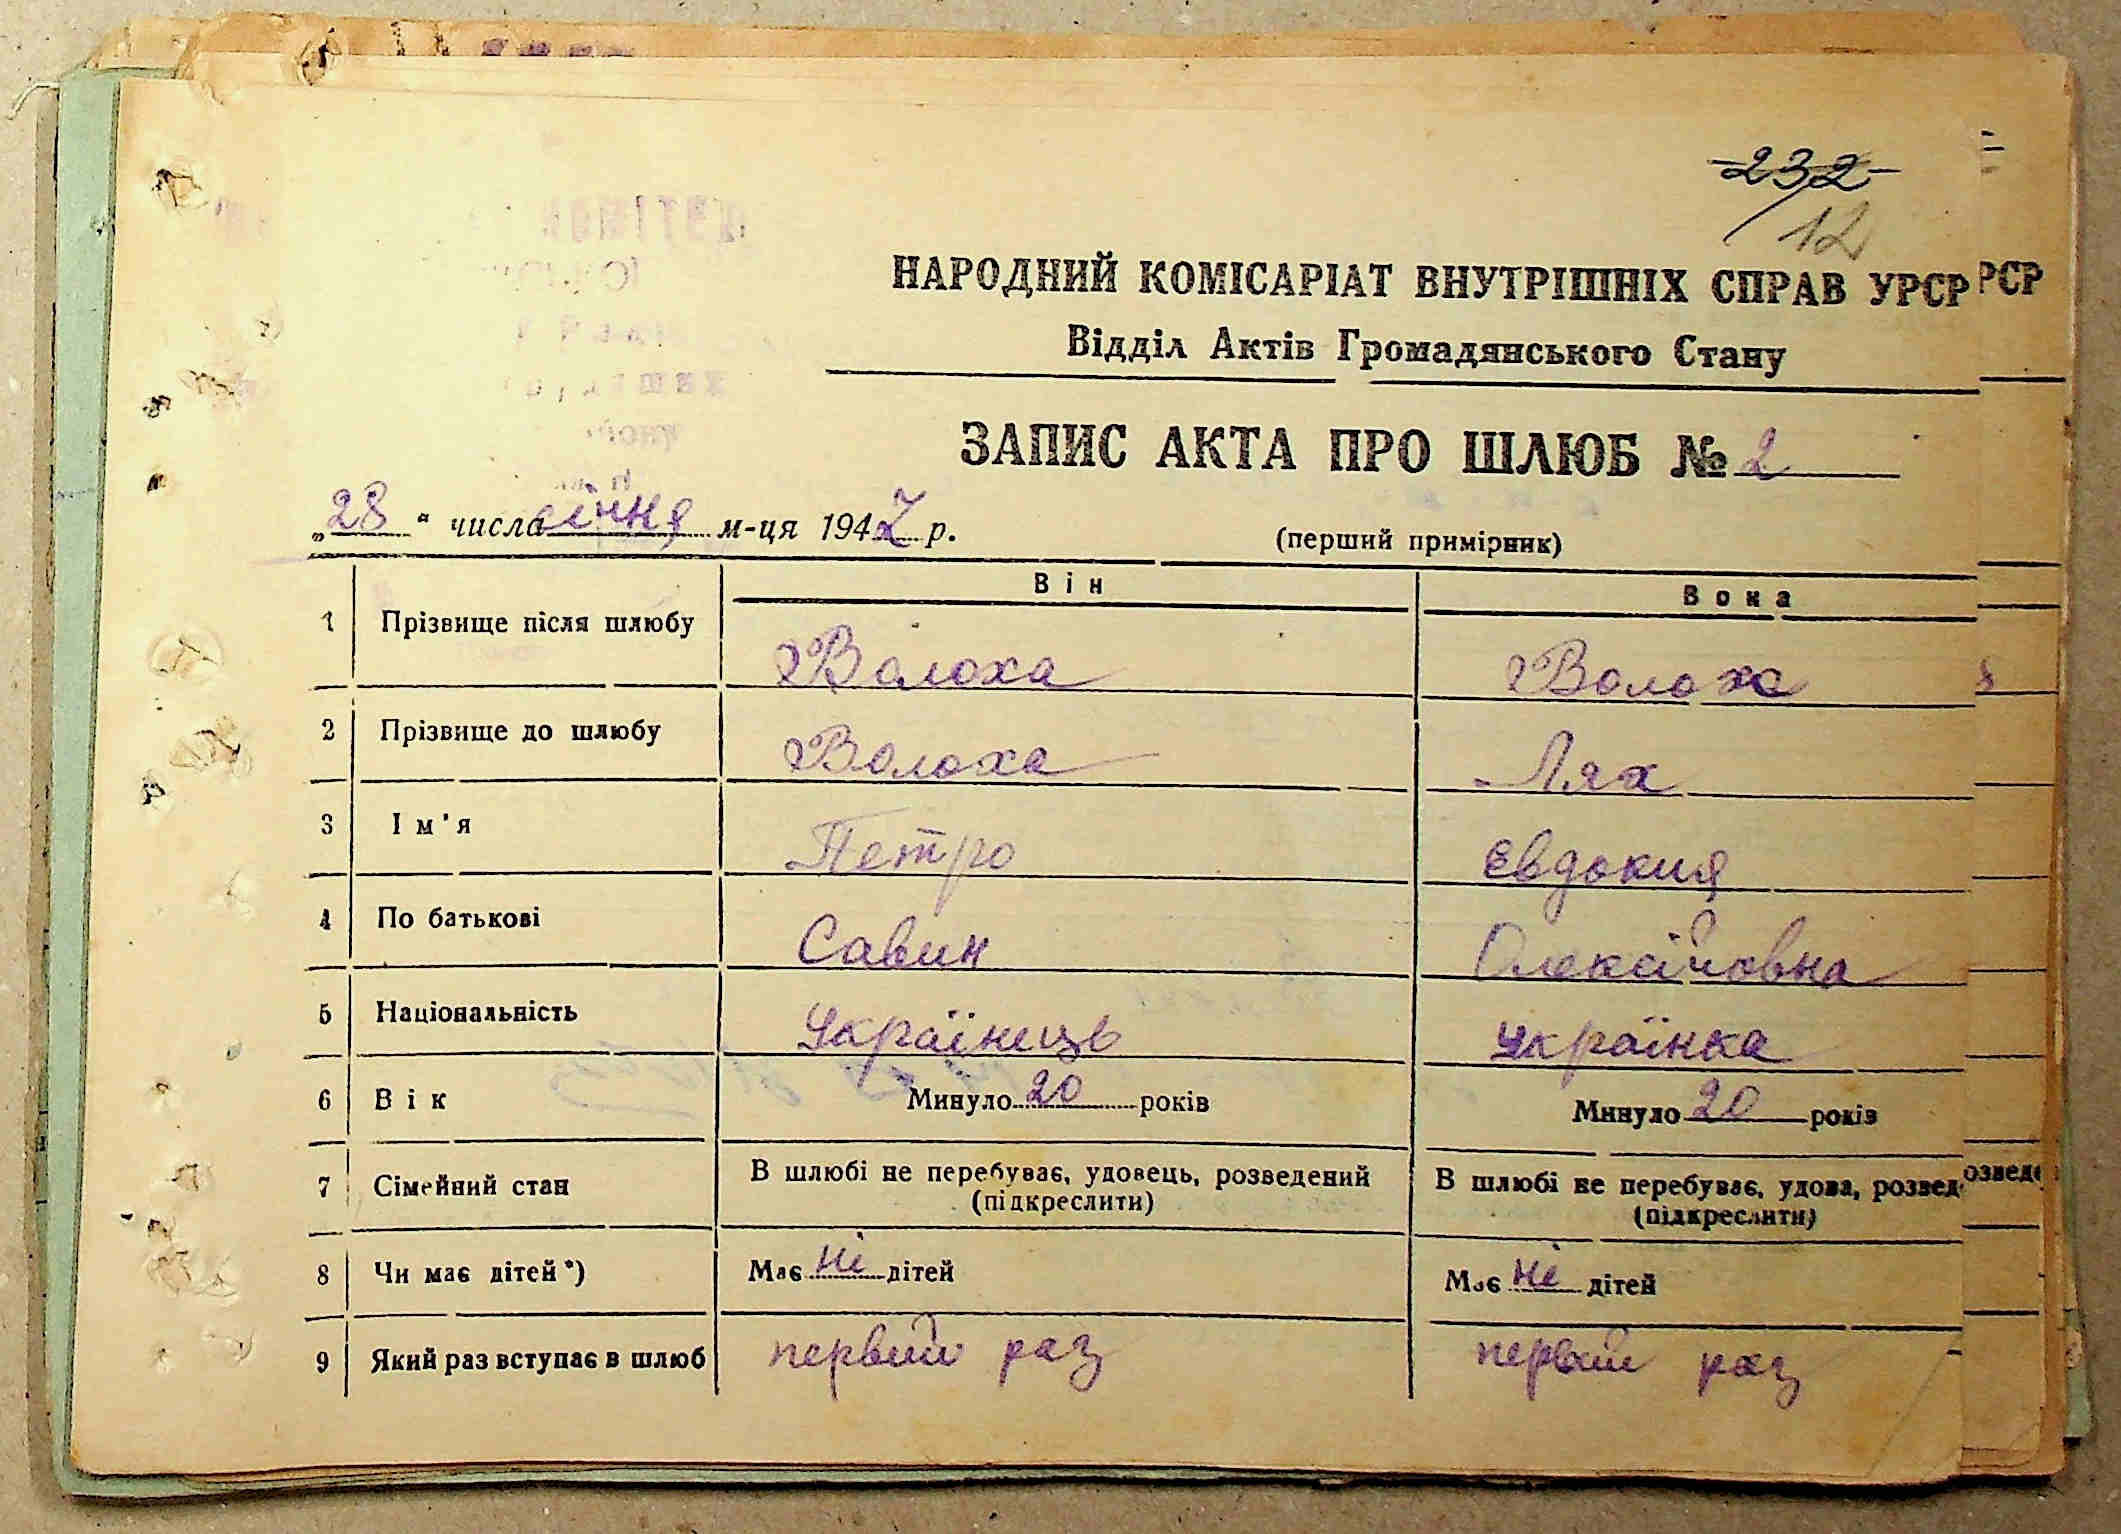 232
12
НАРОДНИЙ КОМІСАРІАТ ВНУТРІШНІХ СПРАВ УРСР РСР
Відділ Актів Громадянського Стану
ЗАПИС АКТА ПРО ШЛЮБ № 2
„28“ числа січня м-ця 1947 р. (перший примірник)
Він Вона
1 Прізвище після шлюбу Волоха Волоха
2 Прізвище до шлюбу Волоха Лях
3 Ім'я Петро Євдокия
4 По батькові Савин Олексійовна
5 Національність Українець Українка
6 Вік Минуло 20 років Минуло 20 років
7 Сімейний стан В шлюбі не перебуває, удовець, розведений В шлюбі не перебуває, удова, розвед озведе
(підкреслити) (підкреслити)
8 Чи має дітей*) Має ні дітей Має ні дітей
9 Який раз вступає в шлюб первий раз первий раз